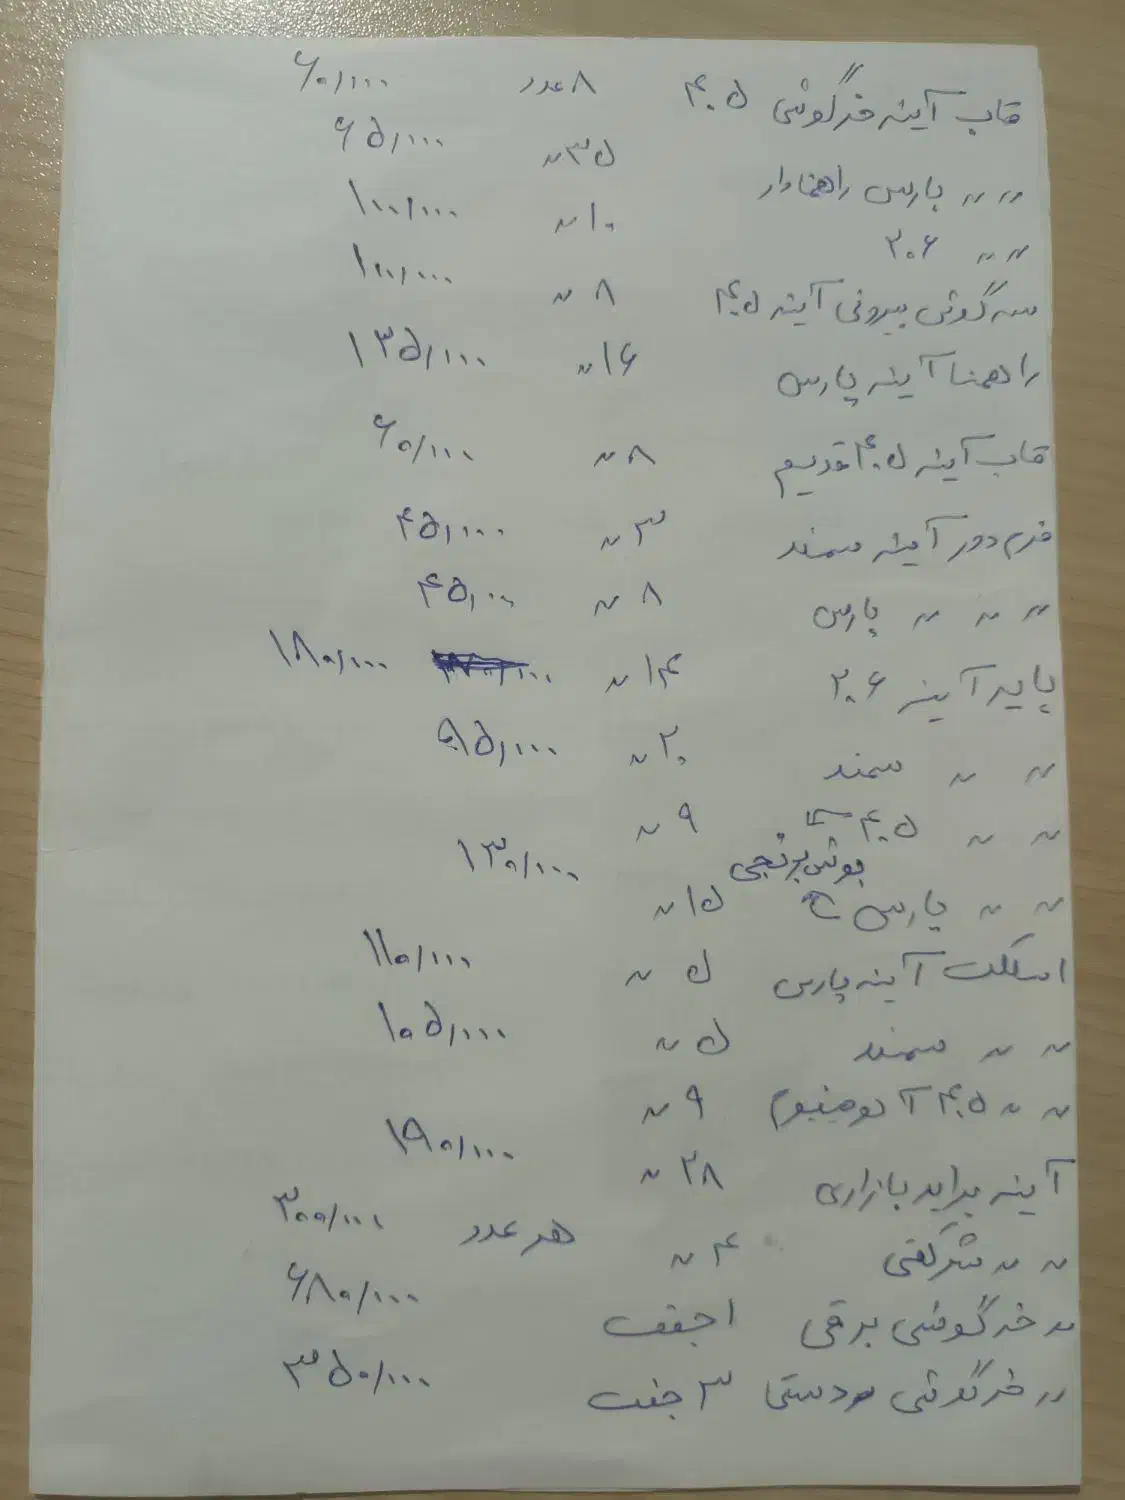 قاب آینه خرگوشی ۴۰۵ ۸ عدد ۶۰/۰۰۰
〃 〃 پارس راهنمادار ۳۵ 〃 ۶۵/۰۰۰
〃 〃 ۲۰۶ ۱۰ 〃 ۱۰۰/۰۰۰
سه گوش بیرونی آینه ۴۰۵ ۸ 〃 ۱۰۰/۰۰۰
راهنما آینه پارس ۱۶ 〃 ۱۳۵/۰۰۰
قاب آینه ۴۰۵ قدیم ۸ 〃 ۶۰/۰۰۰
فرم دور آینه سمند ۳ 〃 ۴۵/۰۰۰
〃 〃 〃 پارس ۸ 〃 ۴۵/۰۰
پایه آینه ۲۰۶ ۱۴ 〃 ۱۸۰/۰۰۰
〃 〃 سمند ۲۰ 〃 ۹۵/۰۰۰
〃 〃 ۴۰۵ ۹ 〃
بوش برنجی ۱۳۰/۰۰۰
〃 〃 پارس ۱۵ 〃
اسکلت آینه پارس ۵ 〃 ۱۱۰/۰۰۰
〃 〃 سمند ۵ 〃 ۱۰۵/۰۰۰
〃 〃 ۴۰۵ آلومینیوم ۹ 〃
آینه پراید بازاری ۲۸ 〃 ۱۹۰/۰۰۰
〃 〃 شرکتی ۴ 〃 هر عدد ۳۰۰/۰۰۰
〃 خرگوشی برقی ۱ جفت ۶۸۰/۰۰۰
〃 خرگوشی دستی ۳ جفت ۳۵۰/۰۰۰